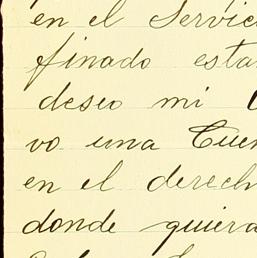 en el Servic
finado esta
deseo mi
vo una Cuen
en el derech
donde quiera